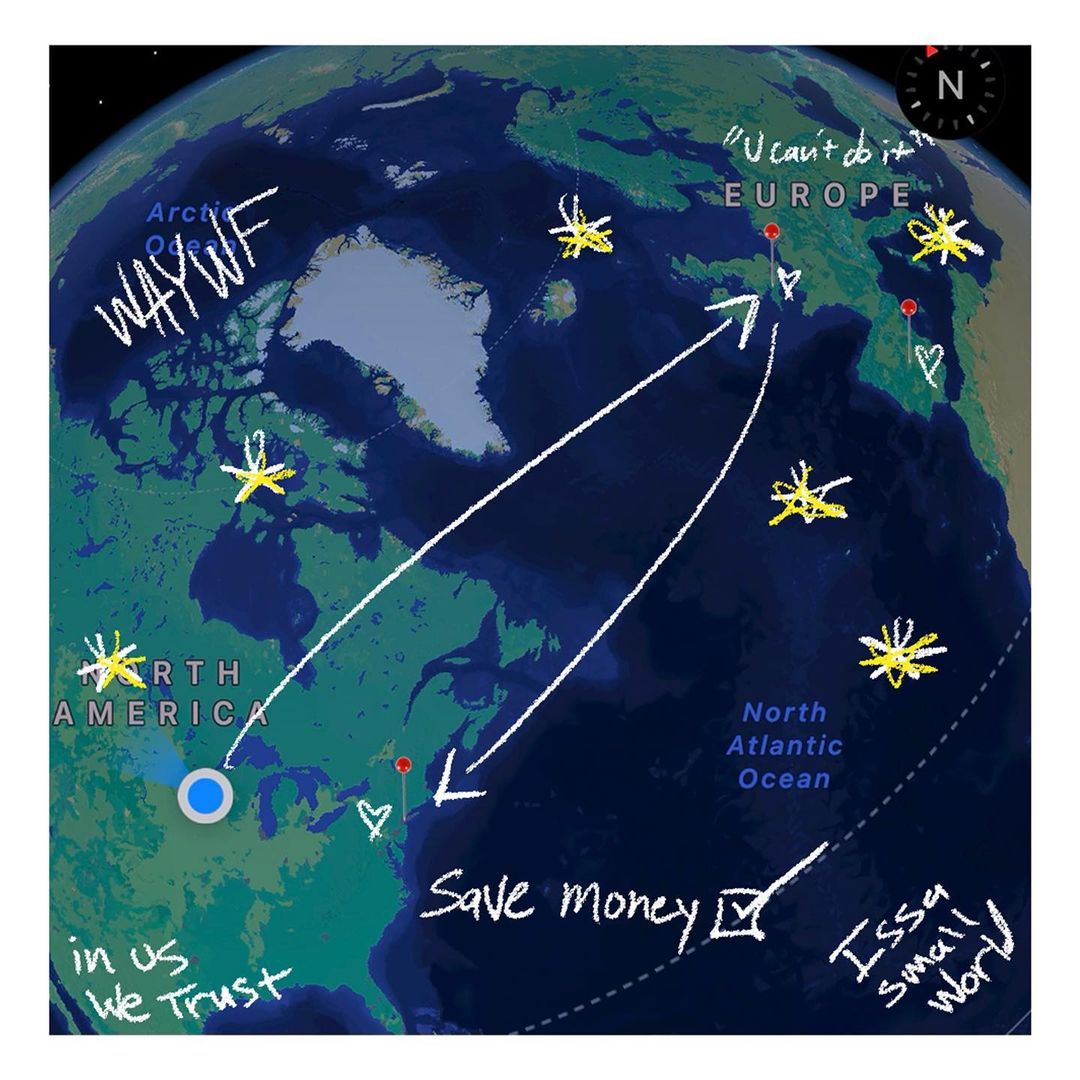 N
"U can't do it"
EUROPE
Arctic
Ocean
WAYWF
NORTH
AMERICA
North
Atlantic
Ocean
Save money
in us
We Trust
Issa
small
World